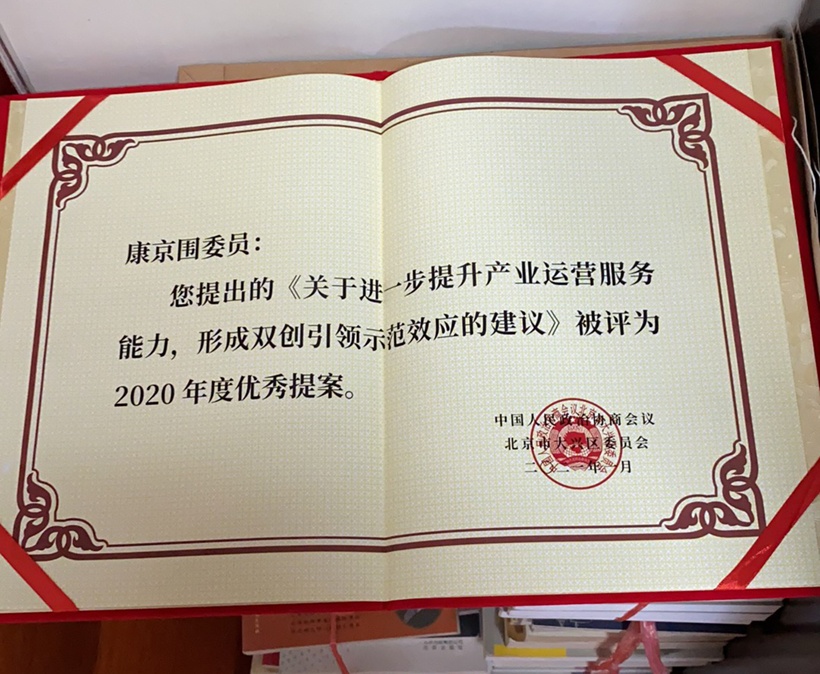 康京围委员：
您提出的《关于进一步提升产业运营服务
能力，形成双创引领示范效应的建议》被评为
2020 年度优秀提案。
中国人民政治协商会议
北京市大兴区委员会